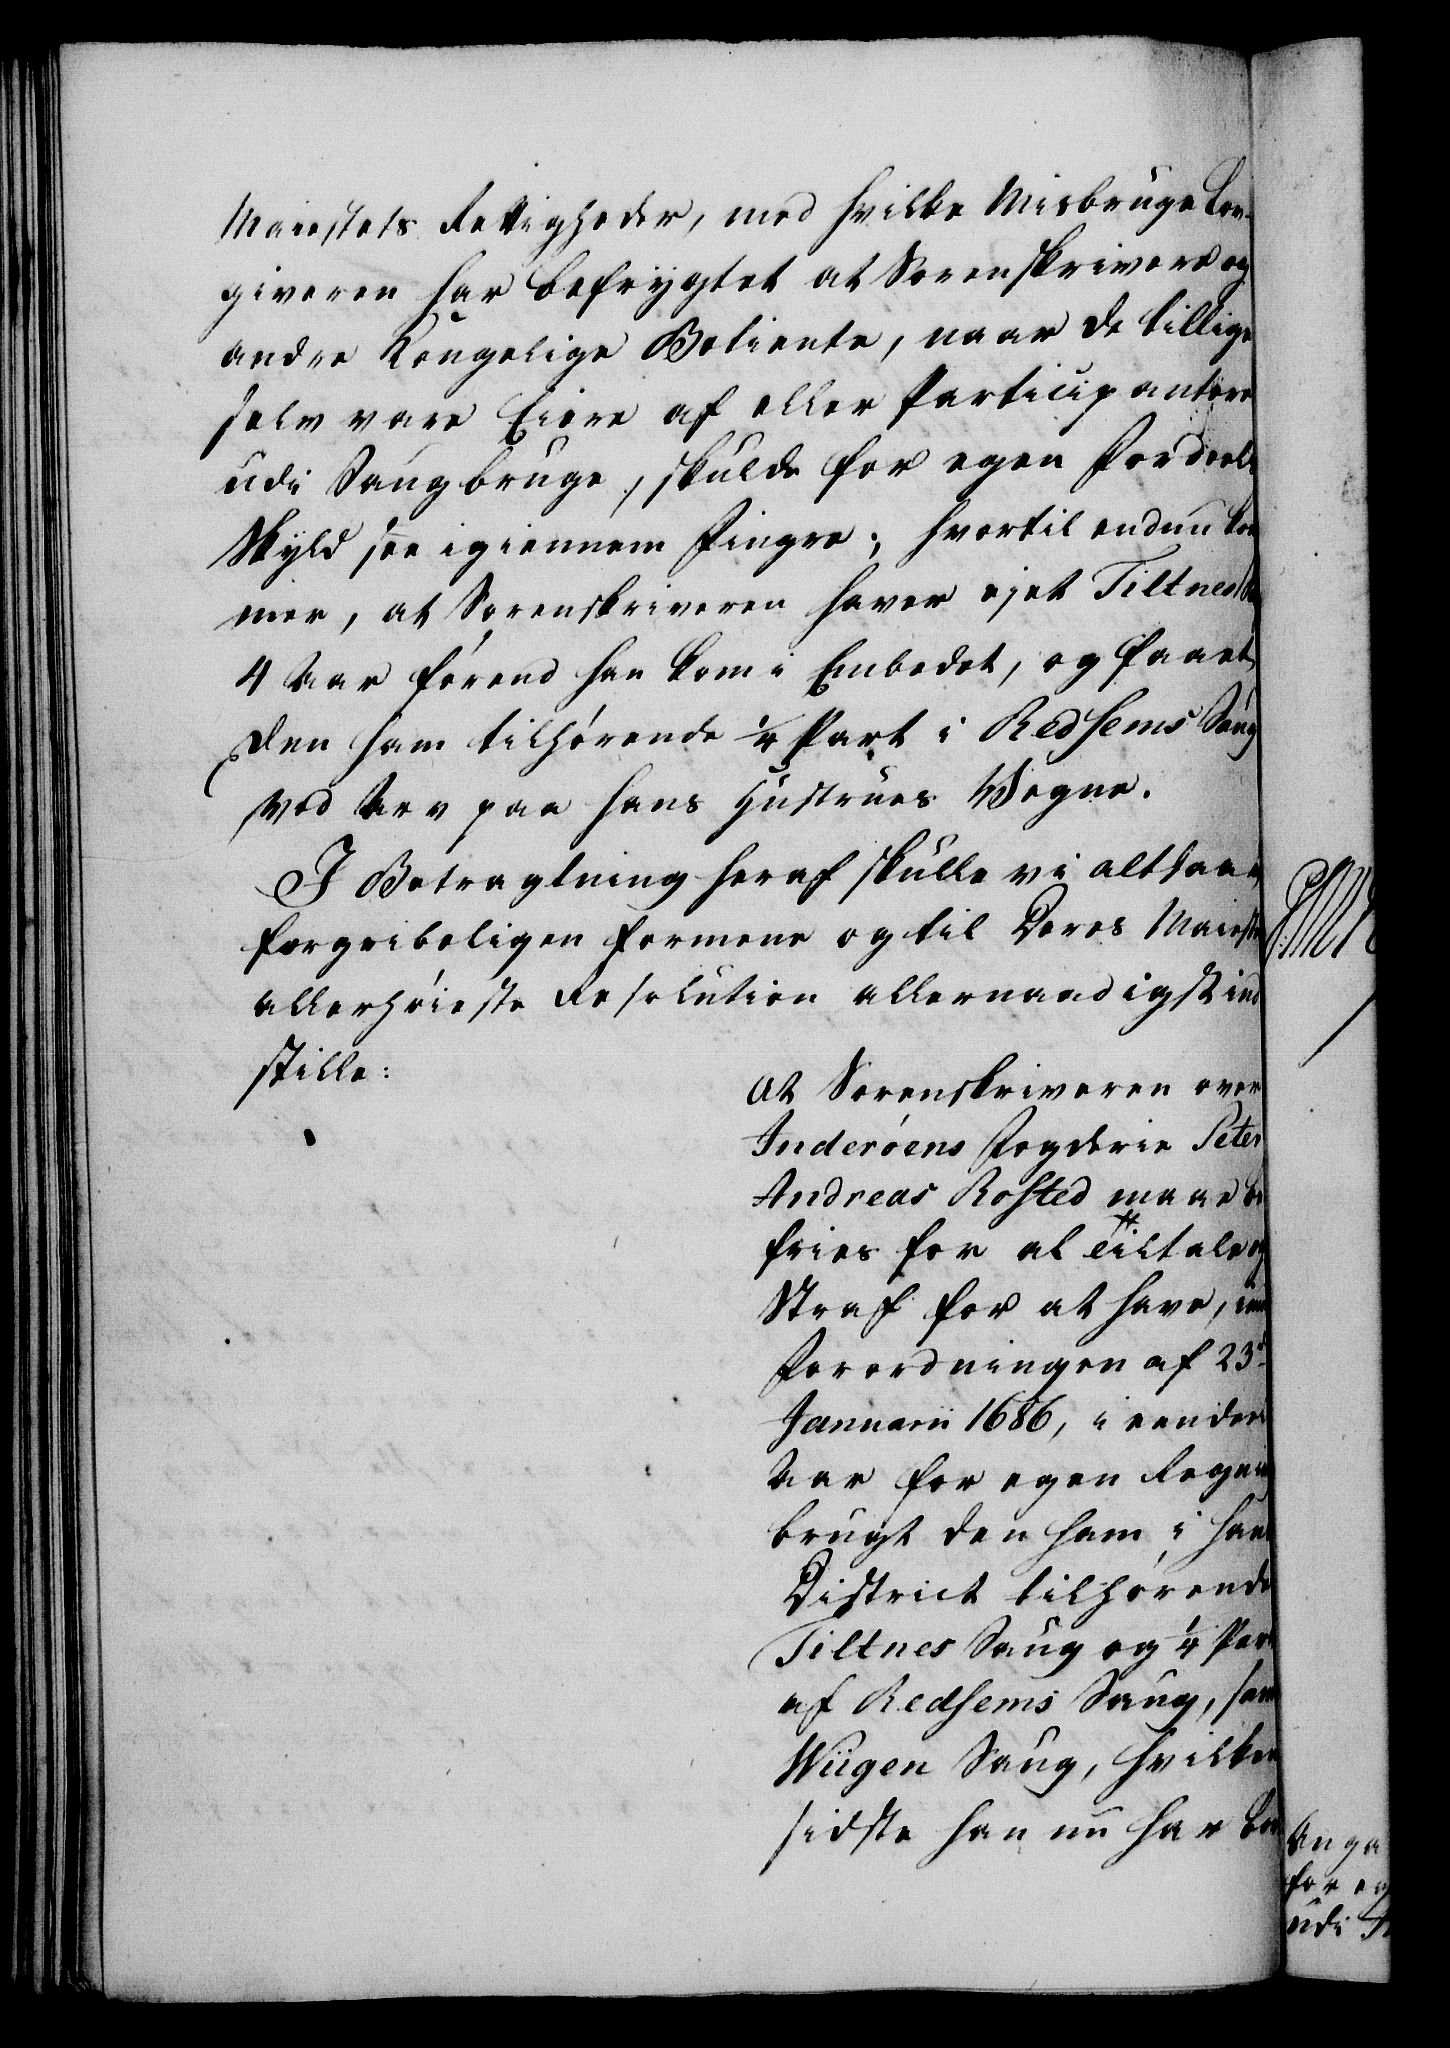 Maiestets Rettigheder, med hvilke Misbruge Lov-
giveren har befrygtet at Sorenskrivere og
andre Kongelige Betiente, naar de tillige
selv vare Eiere af eller Participantere
udi Saugbruge, skulde for egen Fordeels
Skyld see igiennem Fingre; hvortil endnu kom
mer, at Sorenskriveren haver ejet Tiltnes
4 Aar førend han kom i Embedet, og faaet
den ham tilhørende 1/4 Part i Redsems Saug
ved Arv paa hans Hustrues Vegne.
I Betragtning heraf skulle vi altsaa u
forgribeligen formene og til Deres Maiestæ
allerhøieste Resolution allernaadigst ind
stille:
at Sorenskriveren over
Inderøens Fogderie Peter
Andreas Rosted maae be
fries for al Tiltale og
Straf for at have, imod
Forordningen af 23d
Januarii 1686, i eendeel
Aar for egen Regning
brugt den ham i hans
District tilhørende
Tiltnes Saug og 1/4 Part
af Redsems Saug, samt
Wiigen Saug, hvilken
sidste han nu har
Anga
for eg
udi